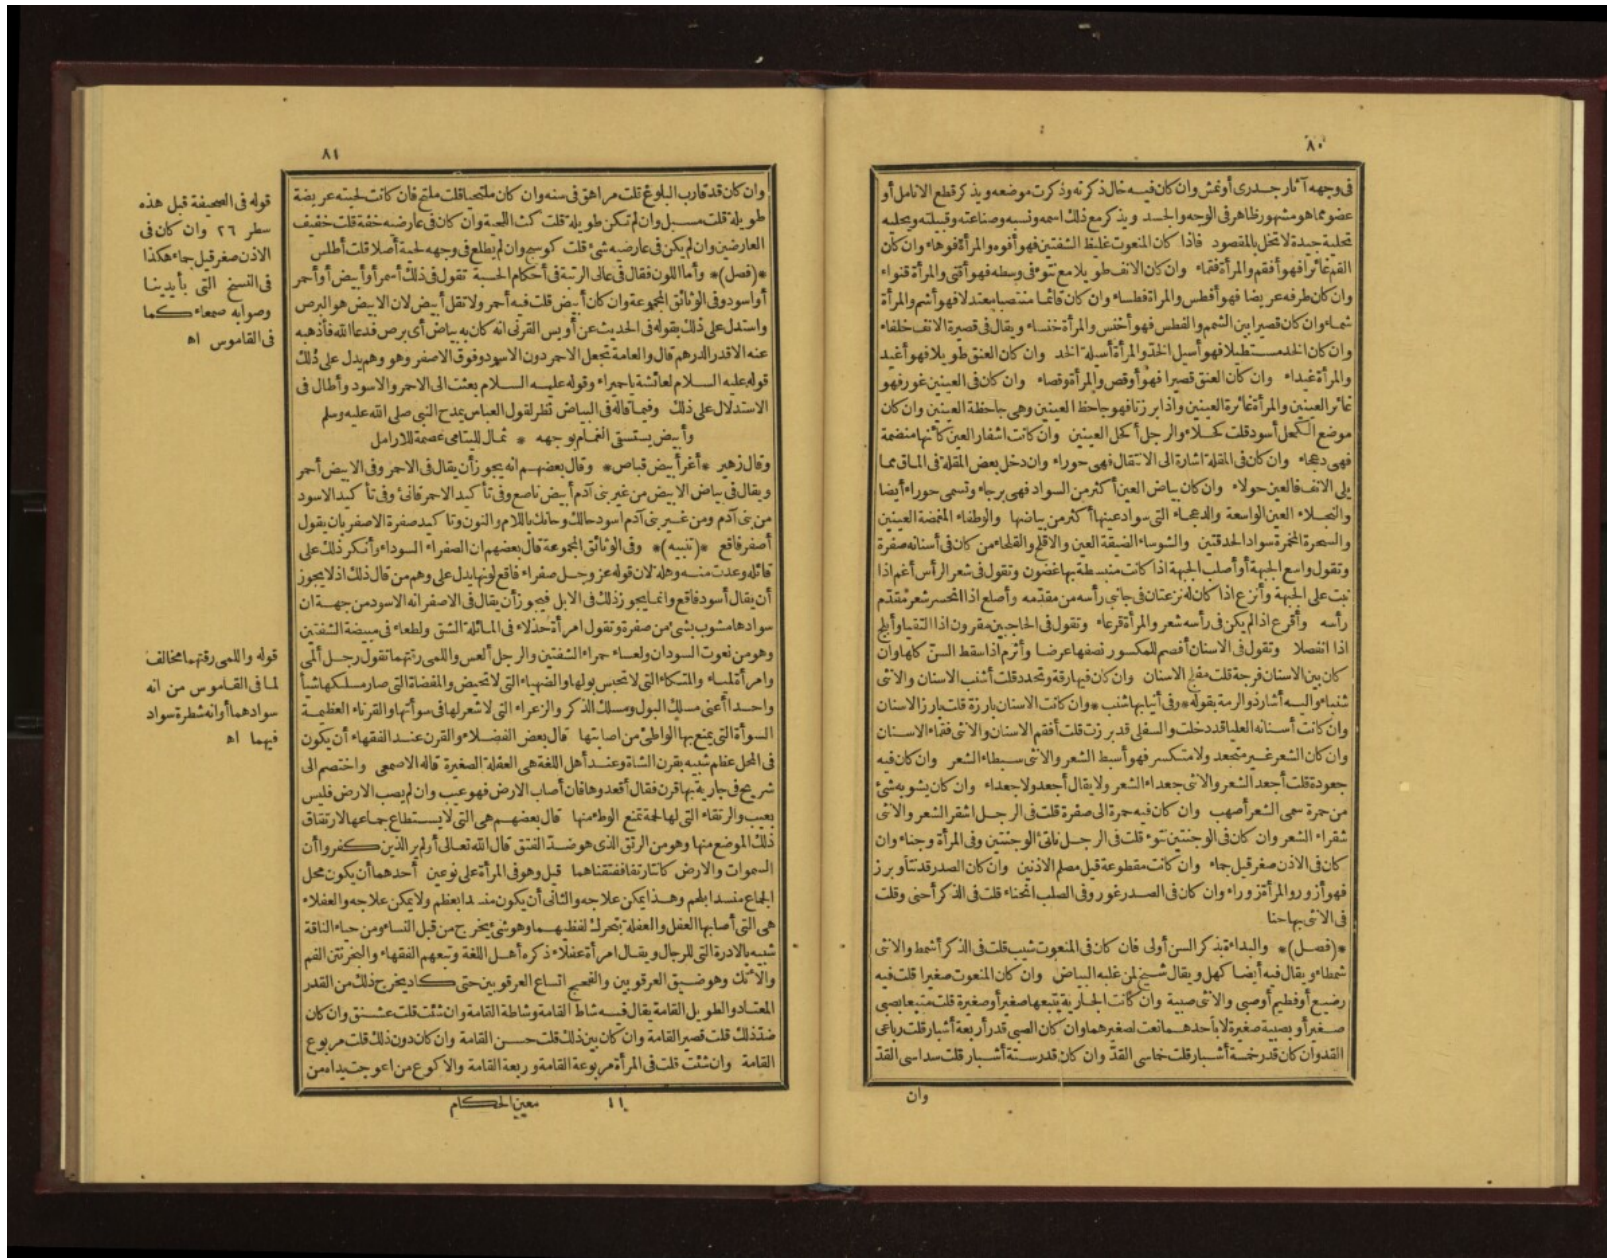 ٨٠
فى وجهه آثار جدرى أو نمش وان كان فيه خال ذكرته وذكرت موضعه ويذكر قطع الانامل أو
عضو مما هو مشهور ظاهر فى الوجه والجسد ويذكر مع ذلك اسمه ونسبه وصناعته وقبيلته ويحليه
تحلية جيدة لا تخل بالمقصود فاذا كان المنعوت غليظ الشفتين فهو أفوه والمرأة فوهاء وان كان
الفم غائرا فهو أفقم والمرأة فقماء وان كان الانف طويلا مع نتوء فى وسطه فهو أقنى والمرأة قنواء
وان كان طرفه عريضا فهو أفطس والمرأة فطساء وان كان قائما منتصبا معتدلا فهو أشم والمرأة
شماء وان كان قصيرا بين الشمم والفطس فهو أخنس والمرأة خنساء ويقال فى قصيرة الانف خلفاء
وان كان الخد مستطيلا فهو أسيل الخد والمرأة أسيلة الخد وان كان العنق طويلا فهو أغيد
والمرأة غيداء وان كان العنق قصيرا فهو أوقص والمرأة وقصاء وان كان فى العينين غور فهو
غائر العينين والمرأة غائرة العينين واذا برزتا فهو جاحظ العينين وهى جاحظة العينين وان كان
موضع الكحل أسود قلت كحلاء والرجل أكحل العينين وان كانت اشفار العين كأنها منضمة
فهى دعجاء وان كان فى المقلة اشارة الى الانتقال فهى حوراء وان دخل بعض المقلة فى الماق مما
يلى الانف فالعين حولاء وان كان بياض العين أكثر من السواد فهى برجاء وتسمى حوراء أيضا
والنجلاء العين الواسعة والدعجاء التى سواد عينها أكثر من بياضها والوطفاء المغمضة العينين
والسجرة المحمرة سواد الحدقتين والشوساء الضيقة العين والاقلح والقلحاء من كان فى أسنانه صفرة
وتقول واسع الجبهة أو أصلب الجبهة اذا كانت منبسطة بها غضون وتقول فى شعر الرأس أغم اذا
نبت على الجبهة وأنزع اذا كان له نزعتان فى جانبى رأسه من مقدمه وأصلع اذا انحسر شعر مقدم
رأسه وأقرع اذا لم يكن فى رأسه شعر والمرأة قرعاء وتقول فى الحاجبين مقرون اذا التقيا وأبلج
اذا انفصلا وتقول فى الاسنان أفصم للمكسور نصفها عرضا وأثرم اذا سقط السن كلها وان
كان بين الاسنان فرجة قلت مفلج الاسنان وان كان فيها رقة وتحدد قلت أشنب الاسنان والانثى
شنباء واليه أشار ذو الرمة بقوله * وفى أنيابها شنب * وان كانت الاسنان بارزة قلت بارز الاسنان
وان كانت أسنانه العليا قد دخلت والسفلى قد برزت قلت أفقم الاسنان والانثى فقماء الاسنان
وان كان الشعر غير متجعد ولا متكسر فهو أسبط الشعر والانثى سبطاء الشعر وان كان فيه
جعودة قلت أجعد الشعر والانثى جعداء الشعر ولا يقال أجعد ولا جعداء وان كان يشوبه شئ
من حمرة سمى الشعر أصهب وان كان فيه حمرة الى صفرة قلت فى الرجل اشقر الشعر والانثى
شقراء الشعر وان كان فى الوجنتين نتوء قلت فى الرجل ناتئ الوجنتين وفى المرأة وجناء وان
كان فى الاذن صغر قيل جماء وان كانت مقطوعة قيل مصلم الاذنين وان كان الصدر قد نتأ وبرز
فهو أزور والمرأة زوراء وان كان فى الصدر غور وفى الصلب انحناء قلت فى الذكر أحنى وقلت
فى الانثى بها حنا
*(فصل)* والبداءة بذكر السن أولى فان كان فى المنعوت شيب قلت فى الذكر أشمط والانثى
شمطاء ويقال فيه أيضا كهل ويقال شيخ لمن غلبه البياض وان كان المنعوت صغيرا قلت فيه
رضيع أو فطيم أو صبى والانثى صبية وان كانت الجارية يتبعها صغير أو صغيرة قلت متبعا بصبى
صغير أو بصبية صغيرة لاباحدهما نعت لصغرهما وان كان الصبى قدر أربعة أشبار قلت رباعى
القد وان كان قدر خمسة أشبار قلت خماسى القد وان كان قدر ستة أشبار قلت سداسى القد
وان
٨١
وان كان قد قارب البلوغ قلت مراهق فى سنه وان كان ملتحيا قلت ملتح فان كانت لحيته عريضة
طويلة قلت مسبل وان لم تكن طويلة قلت كث اللحية وان كان فى عارضه خفة قلت خفيف
العارضين وان لم يكن فى عارضيه شئ قلت كوسج وان لم يطلع فى وجهه لحية أصلا قلت أطلس
*(فصل)* وأما اللون فقال فى عالى الرتبة فى أحكام الحسبة تقول فى ذلك أسمر أو أبيض أو أحمر
أو اسود وفى الوثائق المجموعة وان كان أبيض قلت فيه أحمر ولا تقل أبيض لان الابيض هو البرص
واستدل على ذلك بقوله فى الحديث عن أويس القرنى انه كان به بياض أى برص فدعا الله فأذهبه
عنه الا قدر الدرهم قال والعامة تجعل الاحمر دون الاسود وفوق الاصفر وهو وهم يدل على ذلك
قوله عليه السلام لعائشة يا حميراء وقوله عليه السلام بعثت الى الاحمر والاسود وأطال فى
الاستدلال على ذلك وفيما قاله فى البياض نظر لقول العباس يمدح النبى صلى الله عليه وسلم
وأبيض يستسقى الغمام بوجهه * ثمال لليتامى عصمة للارامل
وقال زهير * أغر أبيض قباص * وقال بعضهم انه يجوز أن يقال فى الاحمر وفى الابيض أحمر
ويقال فى بياض الابيض من غير بنى آدم أبيض ناصع وفى تأكيد الاحمر قانئ وفى تأكيد الاسود
من بنى آدم ومن غير بنى آدم اسود حالك وحانك باللام والنون وتاكيد صفرة الاصفر بان يقول
أصفر فاقع *(تنبيه)* وفى الوثائق المجموعة قال بعضهم ان الصفراء السوداء وأنكر ذلك على
قائله وعدت منه وهلة لان قوله عز وجل صفراء فاقع لونها يدل على وهم من قال ذلك اذ لا يجوز
أن يقال أسود فاقع وانما يجوز ذلك فى الابل فيجوز أن يقال فى الاصفر انه الاسود من جهة ان
سوادها مشوب بشئ من صفرة وتقول امرأة حدلاء فى المائلة الشق ولطعاء فى مبيضة الشفتين
وهو من نعوت السودان ولعساء حمراء الشفتين والرجل ألعس واللمى رقتهما تقول رجل ألمى
وامرأة لمياء والمتكاء التى لا تحبس بولها والضهياء التى لا تحيض والمفضاة التى صار مسلكها شيأ
واحدا أعنى مسلك البول ومسلك الذكر والزعراء التى لا شعر لها فى سوأتها والقرناء العظيمة
السوأة التى يمنع بها الواطئ من اصابتها قال بعض الفضلاء والقرن عند الفقهاء أن يكون
فى المحل عظم شبيه بقرن الشاة وعند أهل اللغة هى العفلة الصغيرة قاله الاصمعى واختصم الى
شريح فى جارية بها قرن فقال أقعدوها فان أصاب الارض فهو عيب وان لم يصب الارض فليس
بعيب والرتقاء التى لها لحمة تمنع الوطء منها قال بعضهم هى التى لا يستطاع جماعها لارتقاق
ذلك الموضع منها وهو من الرتق الذى هو ضد الفتق قال الله تعالى أولم ير الذين كفروا أن
السموات والارض كانتا رتقا ففتقناهما قيل وهو فى المرأة على نوعين أحدهما أن يكون محل
الجماع منسدا بلحم وهذا يمكن علاجه والثانى أن يكون منسدا بعظم ولا يمكن علاجه والعفلاء
هى التى أصابها العفل والعفلة بتحرك لفظيهما وهو شئ يخرج من قبل النساء ومن حياء الناقة
شبيه بالادرة التى للرجال ويقال امرأة عفلاء ذكره أهل اللغة وتبعهم الفقهاء والبخر نتن الفم
والاتك وهو ضيق العرقوبين والفحج اتساع العرقوبين حتى كاد يخرج ذلك من القدر
المعتاد والطويل القامة يقال فيه شاط القامة وشاطة القامة وان شئت قلت عشنق وان كان
ضد ذلك قلت قصير القامة وان كان بين ذلك قلت حسن القامة وان كان دون ذلك قلت مربوع
القامة وان شئت قلت فى المرأة مربوعة القامة وربعة القامة والاكوع من اعوجت يداه من
١١ معين الحكام
قوله فى الصحيفة قبل هذه
سطر ٢٦ وان كان فى
الاذن صغر قيل جماء هكذا
فى النسخ التى بأيدينا
وصوابه صمعاء كما
فى القاموس اه
قوله واللمى رقتهما مخالف
لما فى القاموس من انه
سوادهما أو انه شطرة سواد
فيهما اه